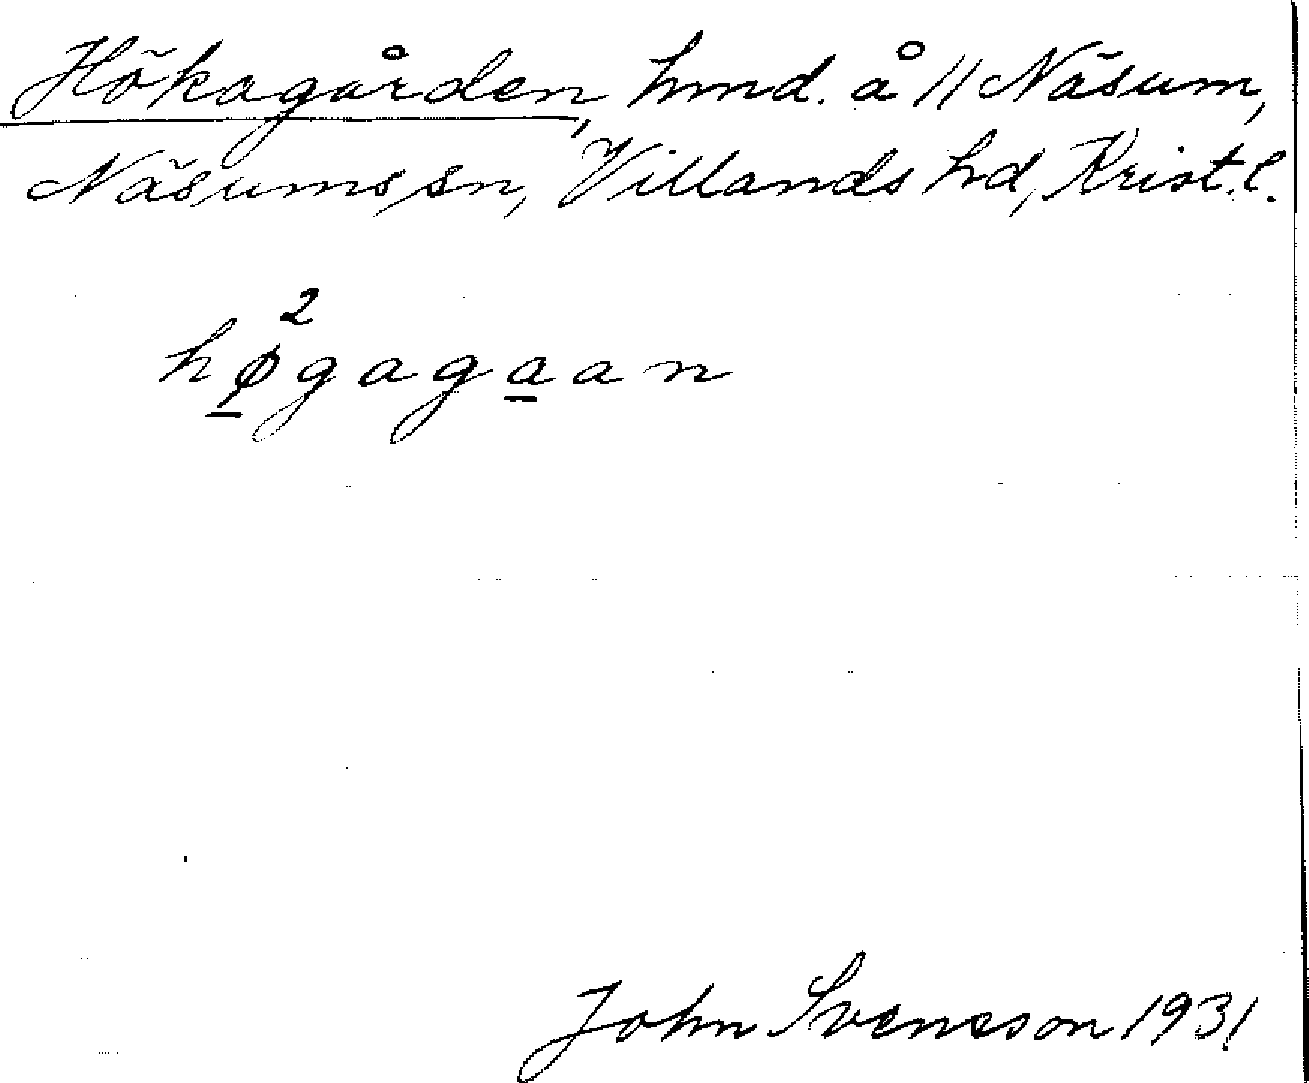 Hökagården, hmd. å 11 Näsum,
Näsums sn, Villands hd, Krist. l.
2
høgagaan
John Svensson 1931